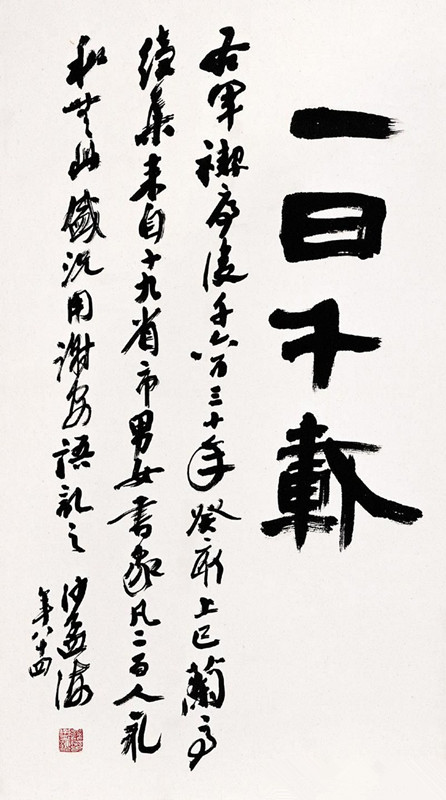 一日千載
右軍禊序後千六百三十年癸亥上巳蘭亭
續集來自十九省市男女書家凡二百人永
和無此盛況用謝安語記之
沙孟海
年八十四